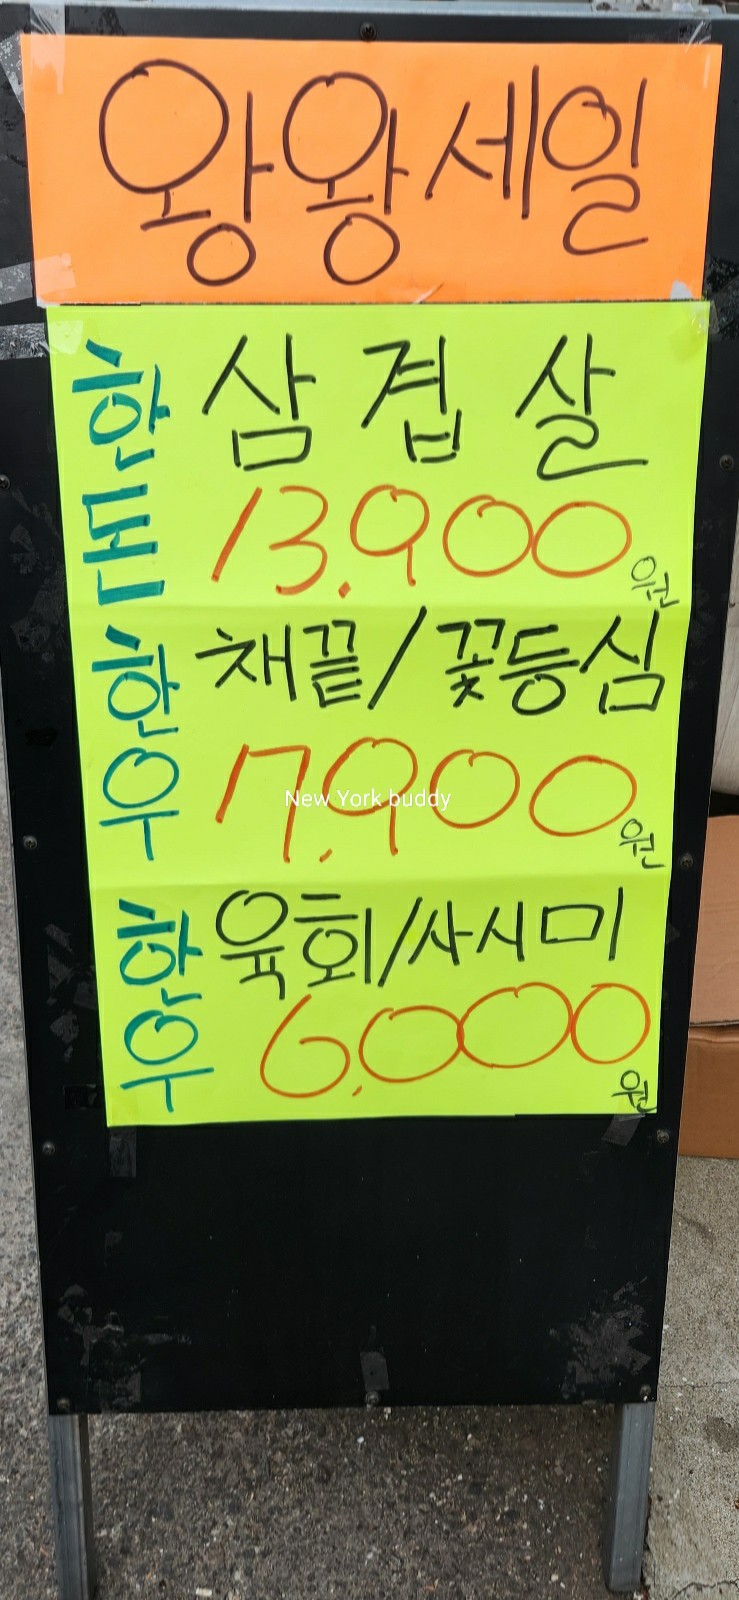 왕왕세일
한돈 삼겹살
13,900원
한우 채끝/꽃등심
17,900원
New York buddy
한우 육회/사시미
6,000원